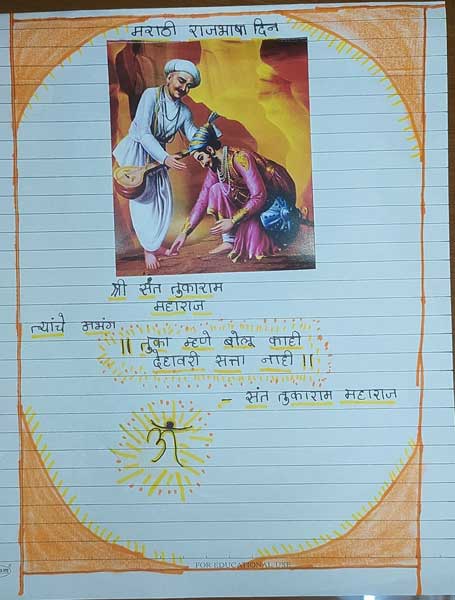 मराठी राजभाषा दिन
श्री संत तुकाराम
महाराज
त्यांचे अभंग
॥ तुका म्हणे बोलू काही
देहावरी सत्ता नाही ॥
- संत तुकाराम महाराज
ॐ
FOR EDUCATIONAL USE